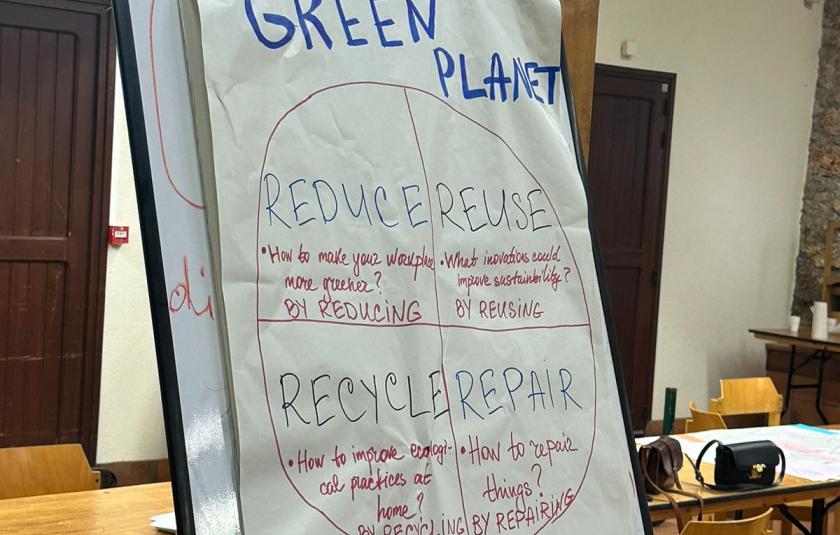 GREEN
PLANET
REDUCE
• How to make your workplace
more greener?
BY REDUCING
REUSE
• What inovations could
improve sustainbility?
BY REUSING
RECYCLE
• How to improve ecologi-
cal practices at
home?
BY RECYCLING
REPAIR
• How to repair
things?
BY REPAIRING
di